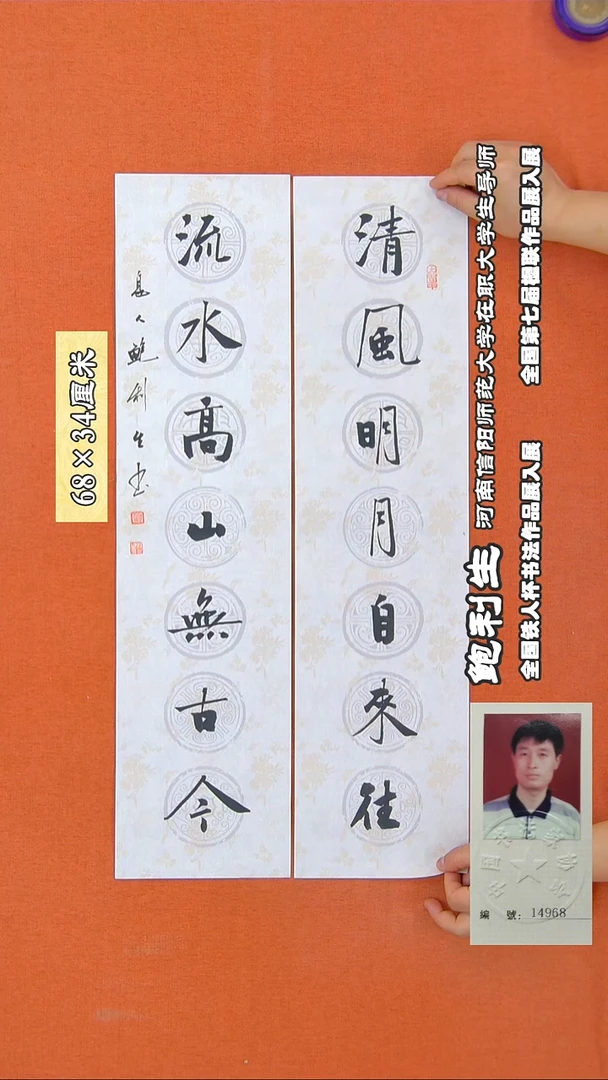 清風明月自來往
流水高山無古今
息人鲍利生书
68×34厘米
鲍利生
河南信阳师范大学在职大学生导师
全国第七届楹联作品展入展
全国铁人杯书法作品展入展
編 號: 14968